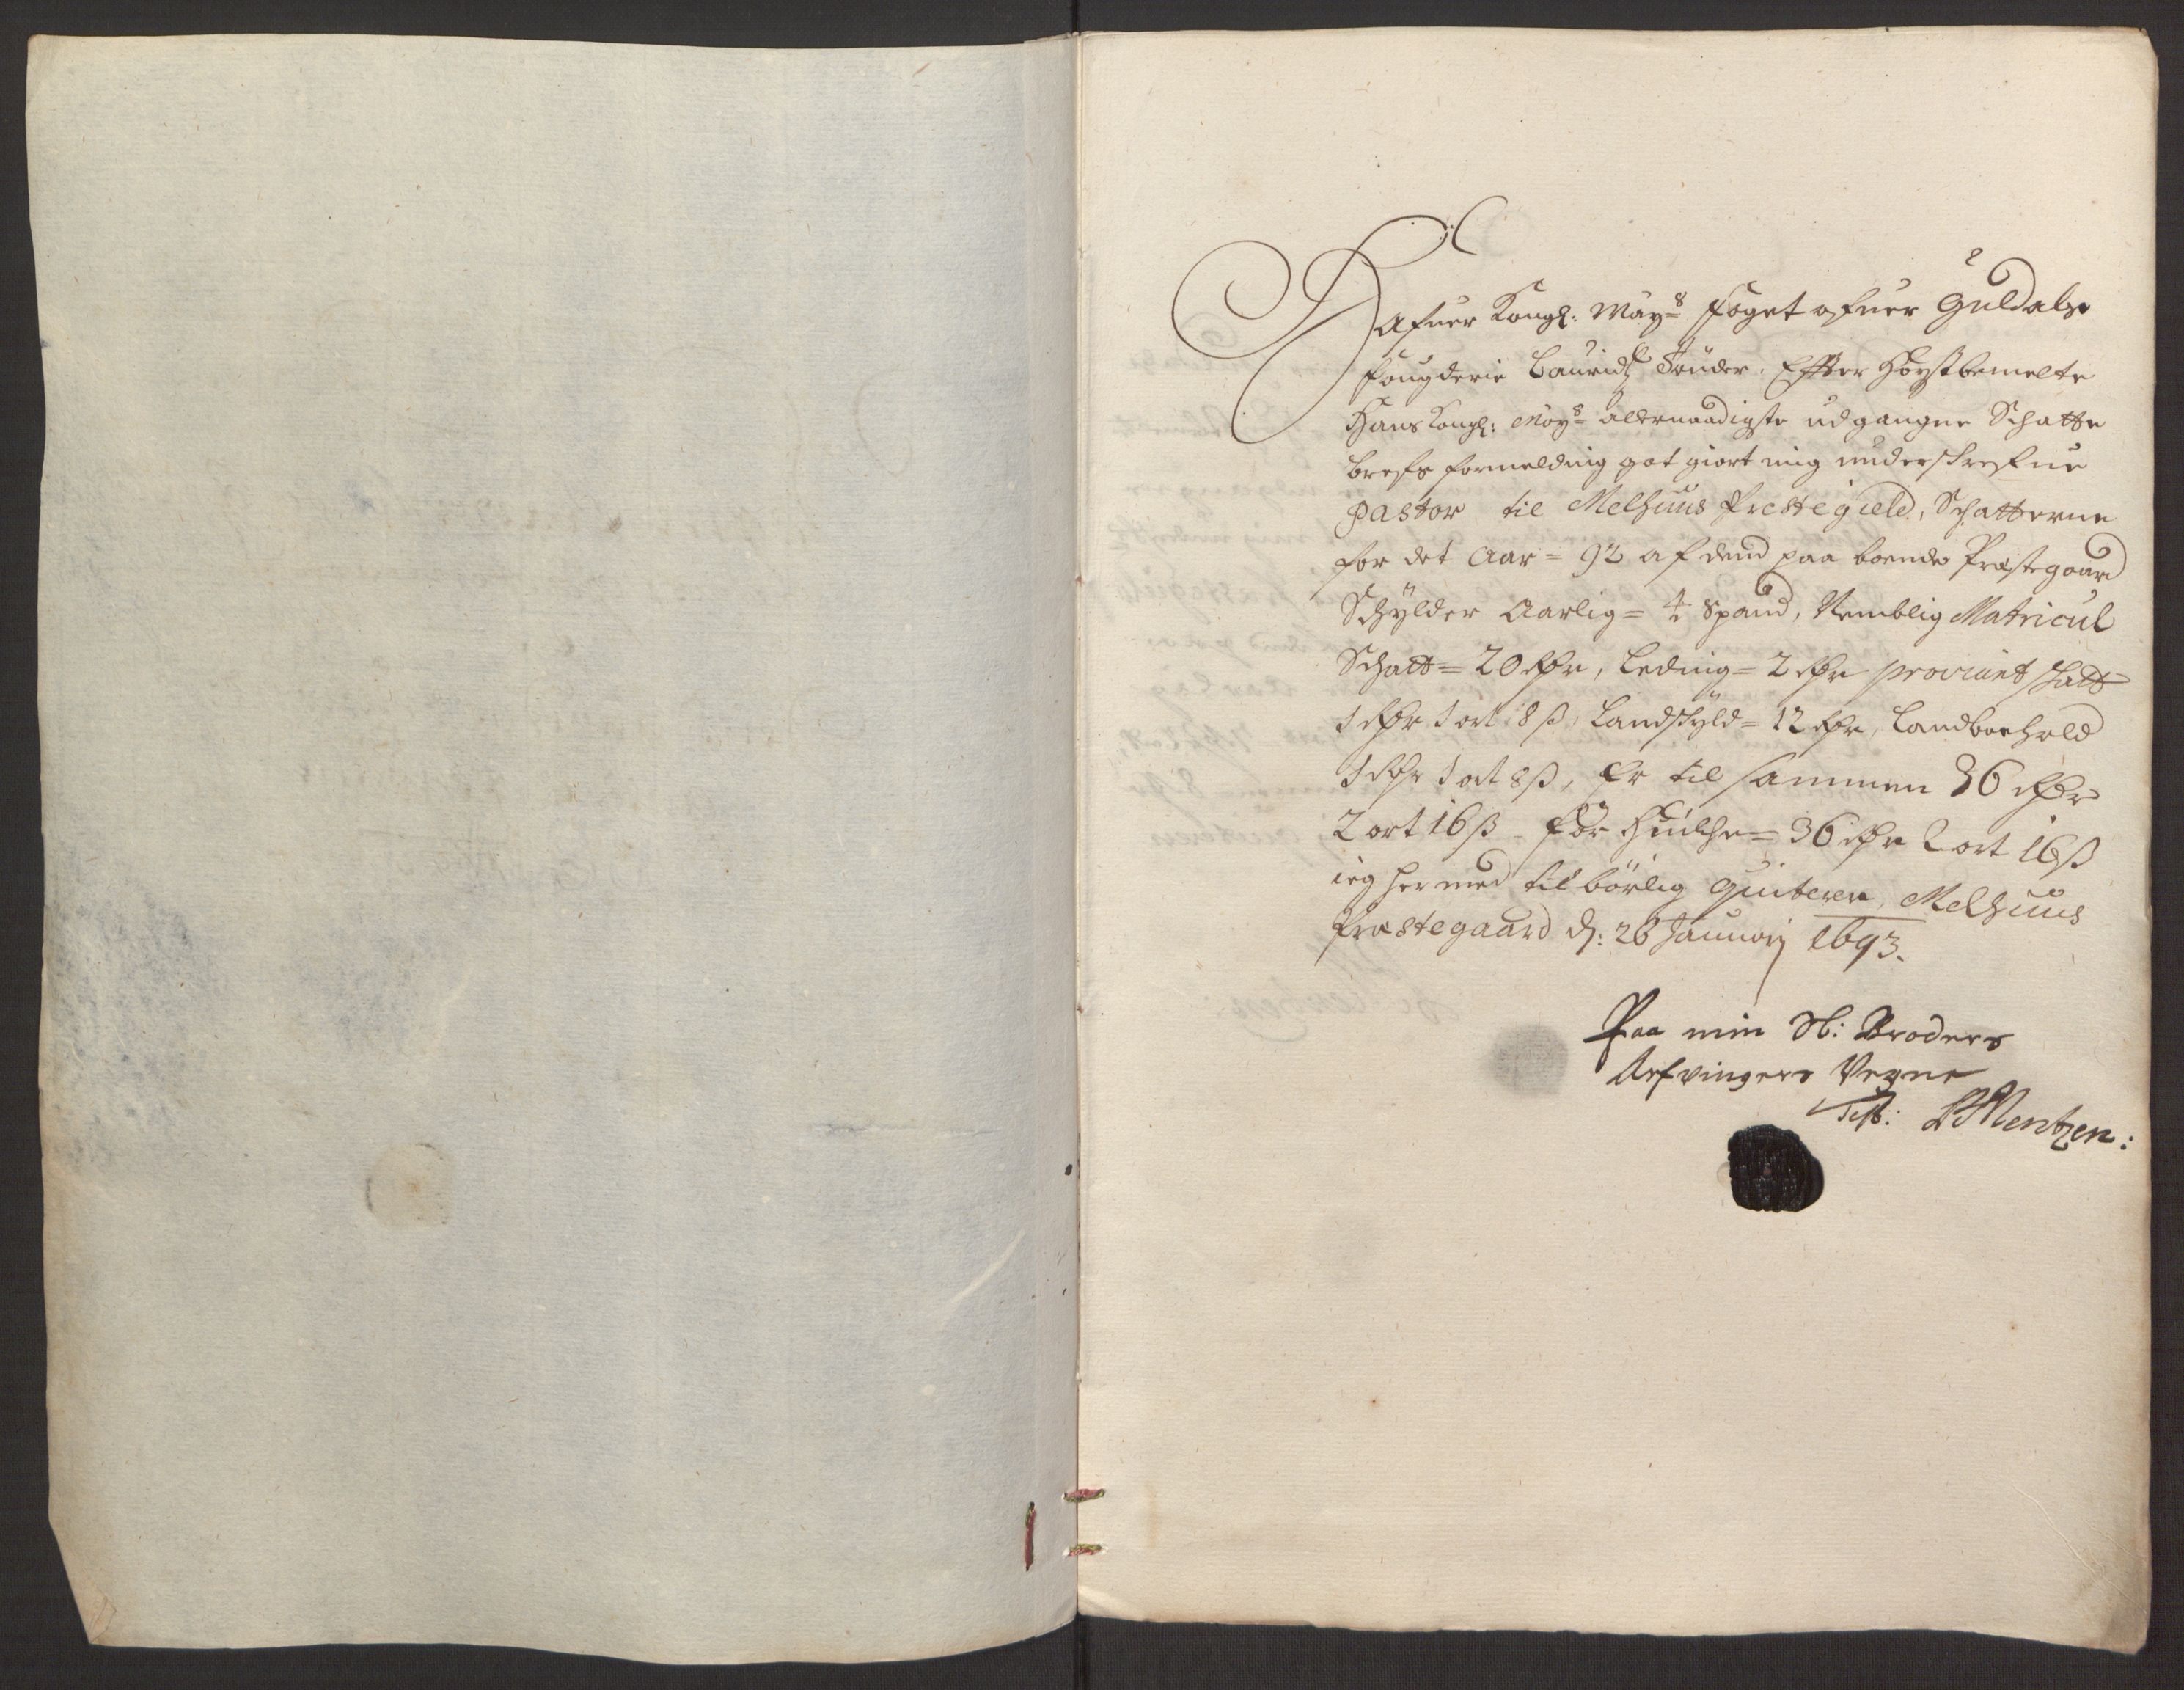 Hafuer Kongl: May:s foget ofuer Guldals
fougderie Lauridtz Brüder. Effter Høystbemelte
Hans Kongl: May:s allernaadigste udgangne Schatte
brefs formelding got giort mig underskrefne
Pastor til Melhuus Prestegield, Schatterne
for det Aar = 92 af dend paa boende Præstegaard
Schylder Aarlig = 4 Spand, Nemblig Matricul
Schatt = 20 rdr, Leding = 2 rdr proviant skatt
1 rdr 1 ort 8 ß, Landskyld = 12 rdr, Landboehold
1 rdr 1 ort 8 ß, Er til sammen 36 rdr
2 ort 16 ß for Huilche = 36 rdr 2 ort 16 ß
ieg hermed tilbørlig quiterer, Melhuus
Præstegaard d: 26 Januarij 1693.
Paa min Sl: Broders
Arfvingers Vegne
Test: Mentzen: